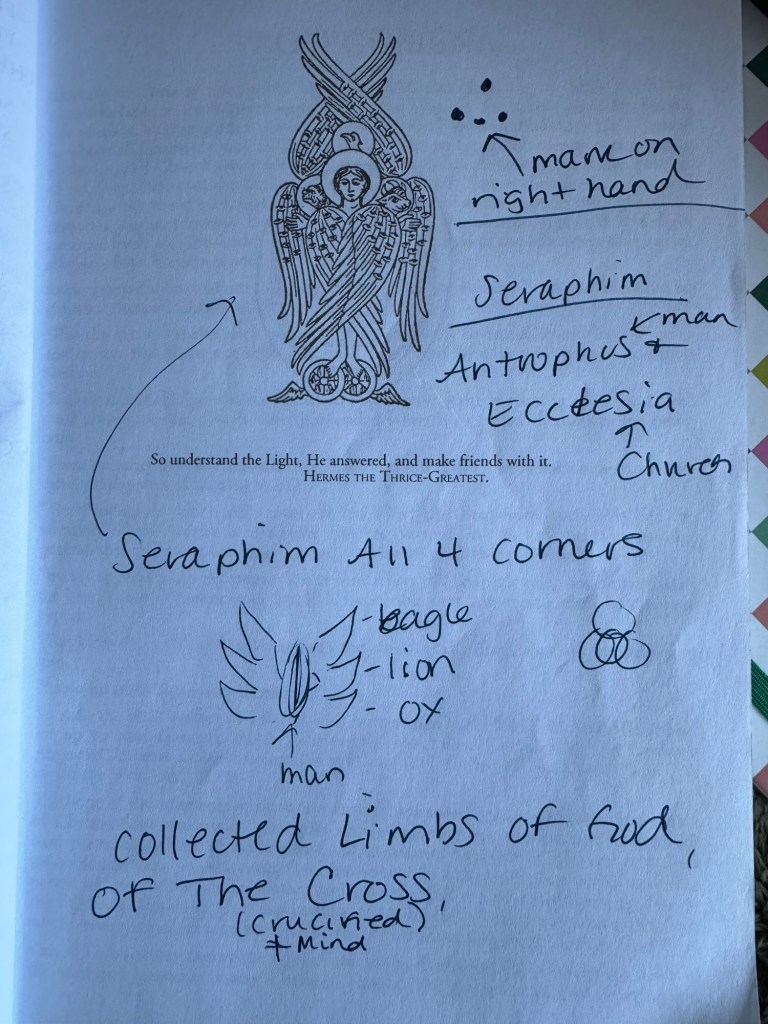 mark on
right hand
Seraphim
man
Antrophus +
Ecclesia
Church
So understand the Light, He answered, and make friends with it.
HERMES THE THRICE-GREATEST.
Seraphim All 4 corners
-eagle
-lion
- ox
man
collected Limbs of God,
Of The Cross,
(crucified)
+ Mind